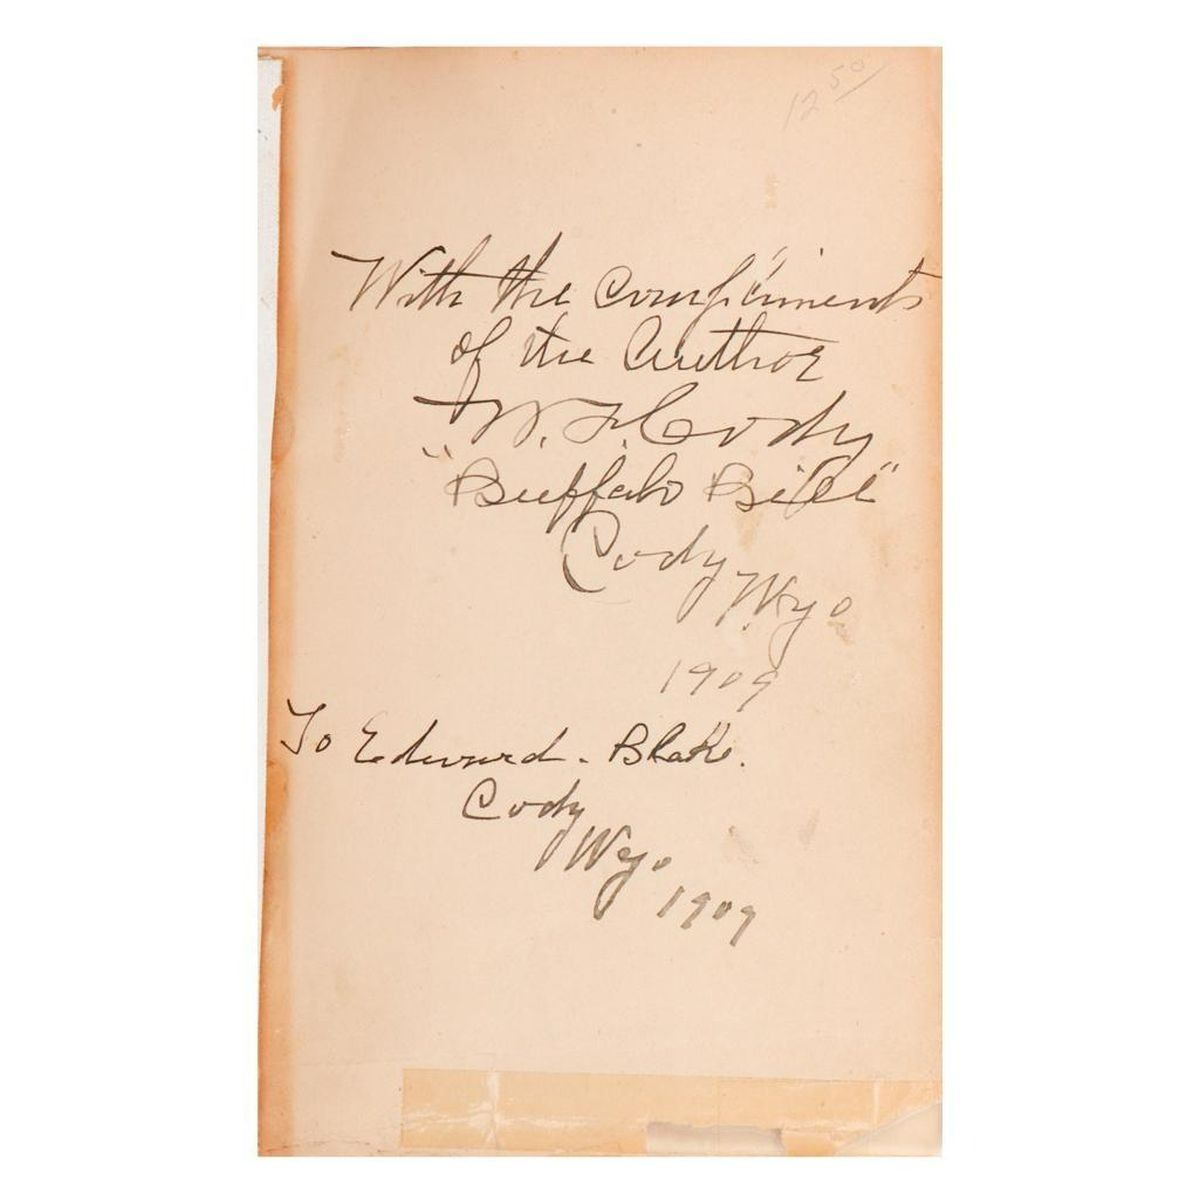 12 50
With the Compliments
of the Author
W. F. Cody
"Buffalo Bill"
Cody
Wyo
1909
To Edward. Blake.
Cody
Wyo
1909